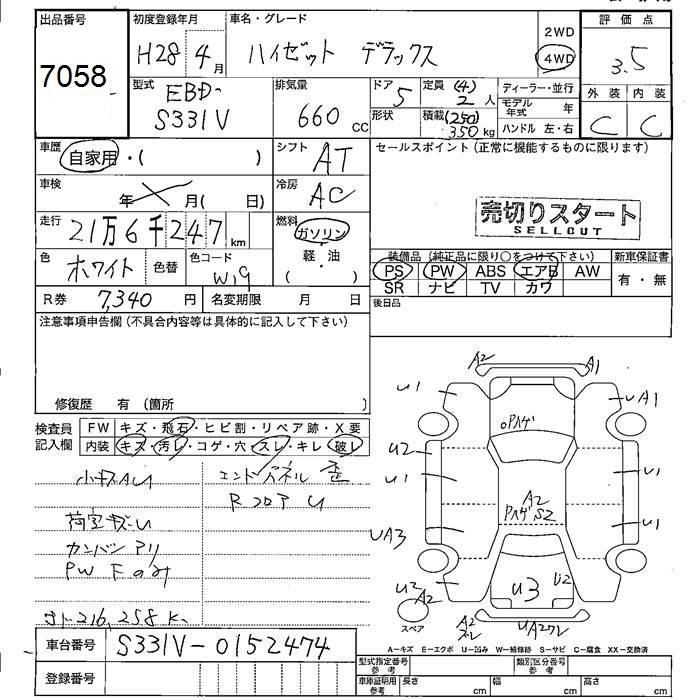 出品番号
7058
初度登録年月
H28 4月
車名・グレード
ハイゼット デラックス
2WD
4WD
評価点
3.5
型式
EBD-
S331V
排気量
660 cc
ドア
5
形状
定員 (4)
2 人
積載 (250)
350 kg
ディーラー・並行
モデル年式 年
ハンドル 左・右
外装 内装
C C
車歴
自家用・( )
シフト
AT
セールスポイント(正常に機能するものに限ります)
車検
年 月( 日)
冷房
AC
売切りスタート
SELLOUT
走行
21万6千247 km
燃料
ガソリン
軽・油
( )
色
ホワイト
色替
色コード
W19
装備品(純正品に限り○をつけて下さい)
PS PW ABS エアB AW
SR ナビ TV カワ
新車保証書
有・無
R券 7,340 円
名変期限 月 日
後日品
注意事項申告欄(不具合内容等は具体的に記入して下さい)
修復歴 有(箇所 )
検査員記入欄
FW キズ・飛石・ヒビ割・リペア跡・X要
内装 キズ・汚レ・コゲ・穴・スレ・キレ・破レ
小キズAU
エンドパネル 歪
Rコロア U
荷室キズ・U
カンバン アリ
PW Fのみ
216,258 K
A2 A1
U1 UA1
PハゲU2 U1
U1
A2
Pハゲ S2
U1
UA3
U2 A2
U3 U2
A2
スペア
A2
ズレ
UA2ワレ
A2
A−キズ E−エクボ U−凹み W−補修跡 S−サビ C−腐食 XX−交換済
車台番号
S331V-0152474
登録番号
型式指定番号 参考
類別区分番号 参考
車庫証明用 参考
長さ cm
幅 cm
高さ cm